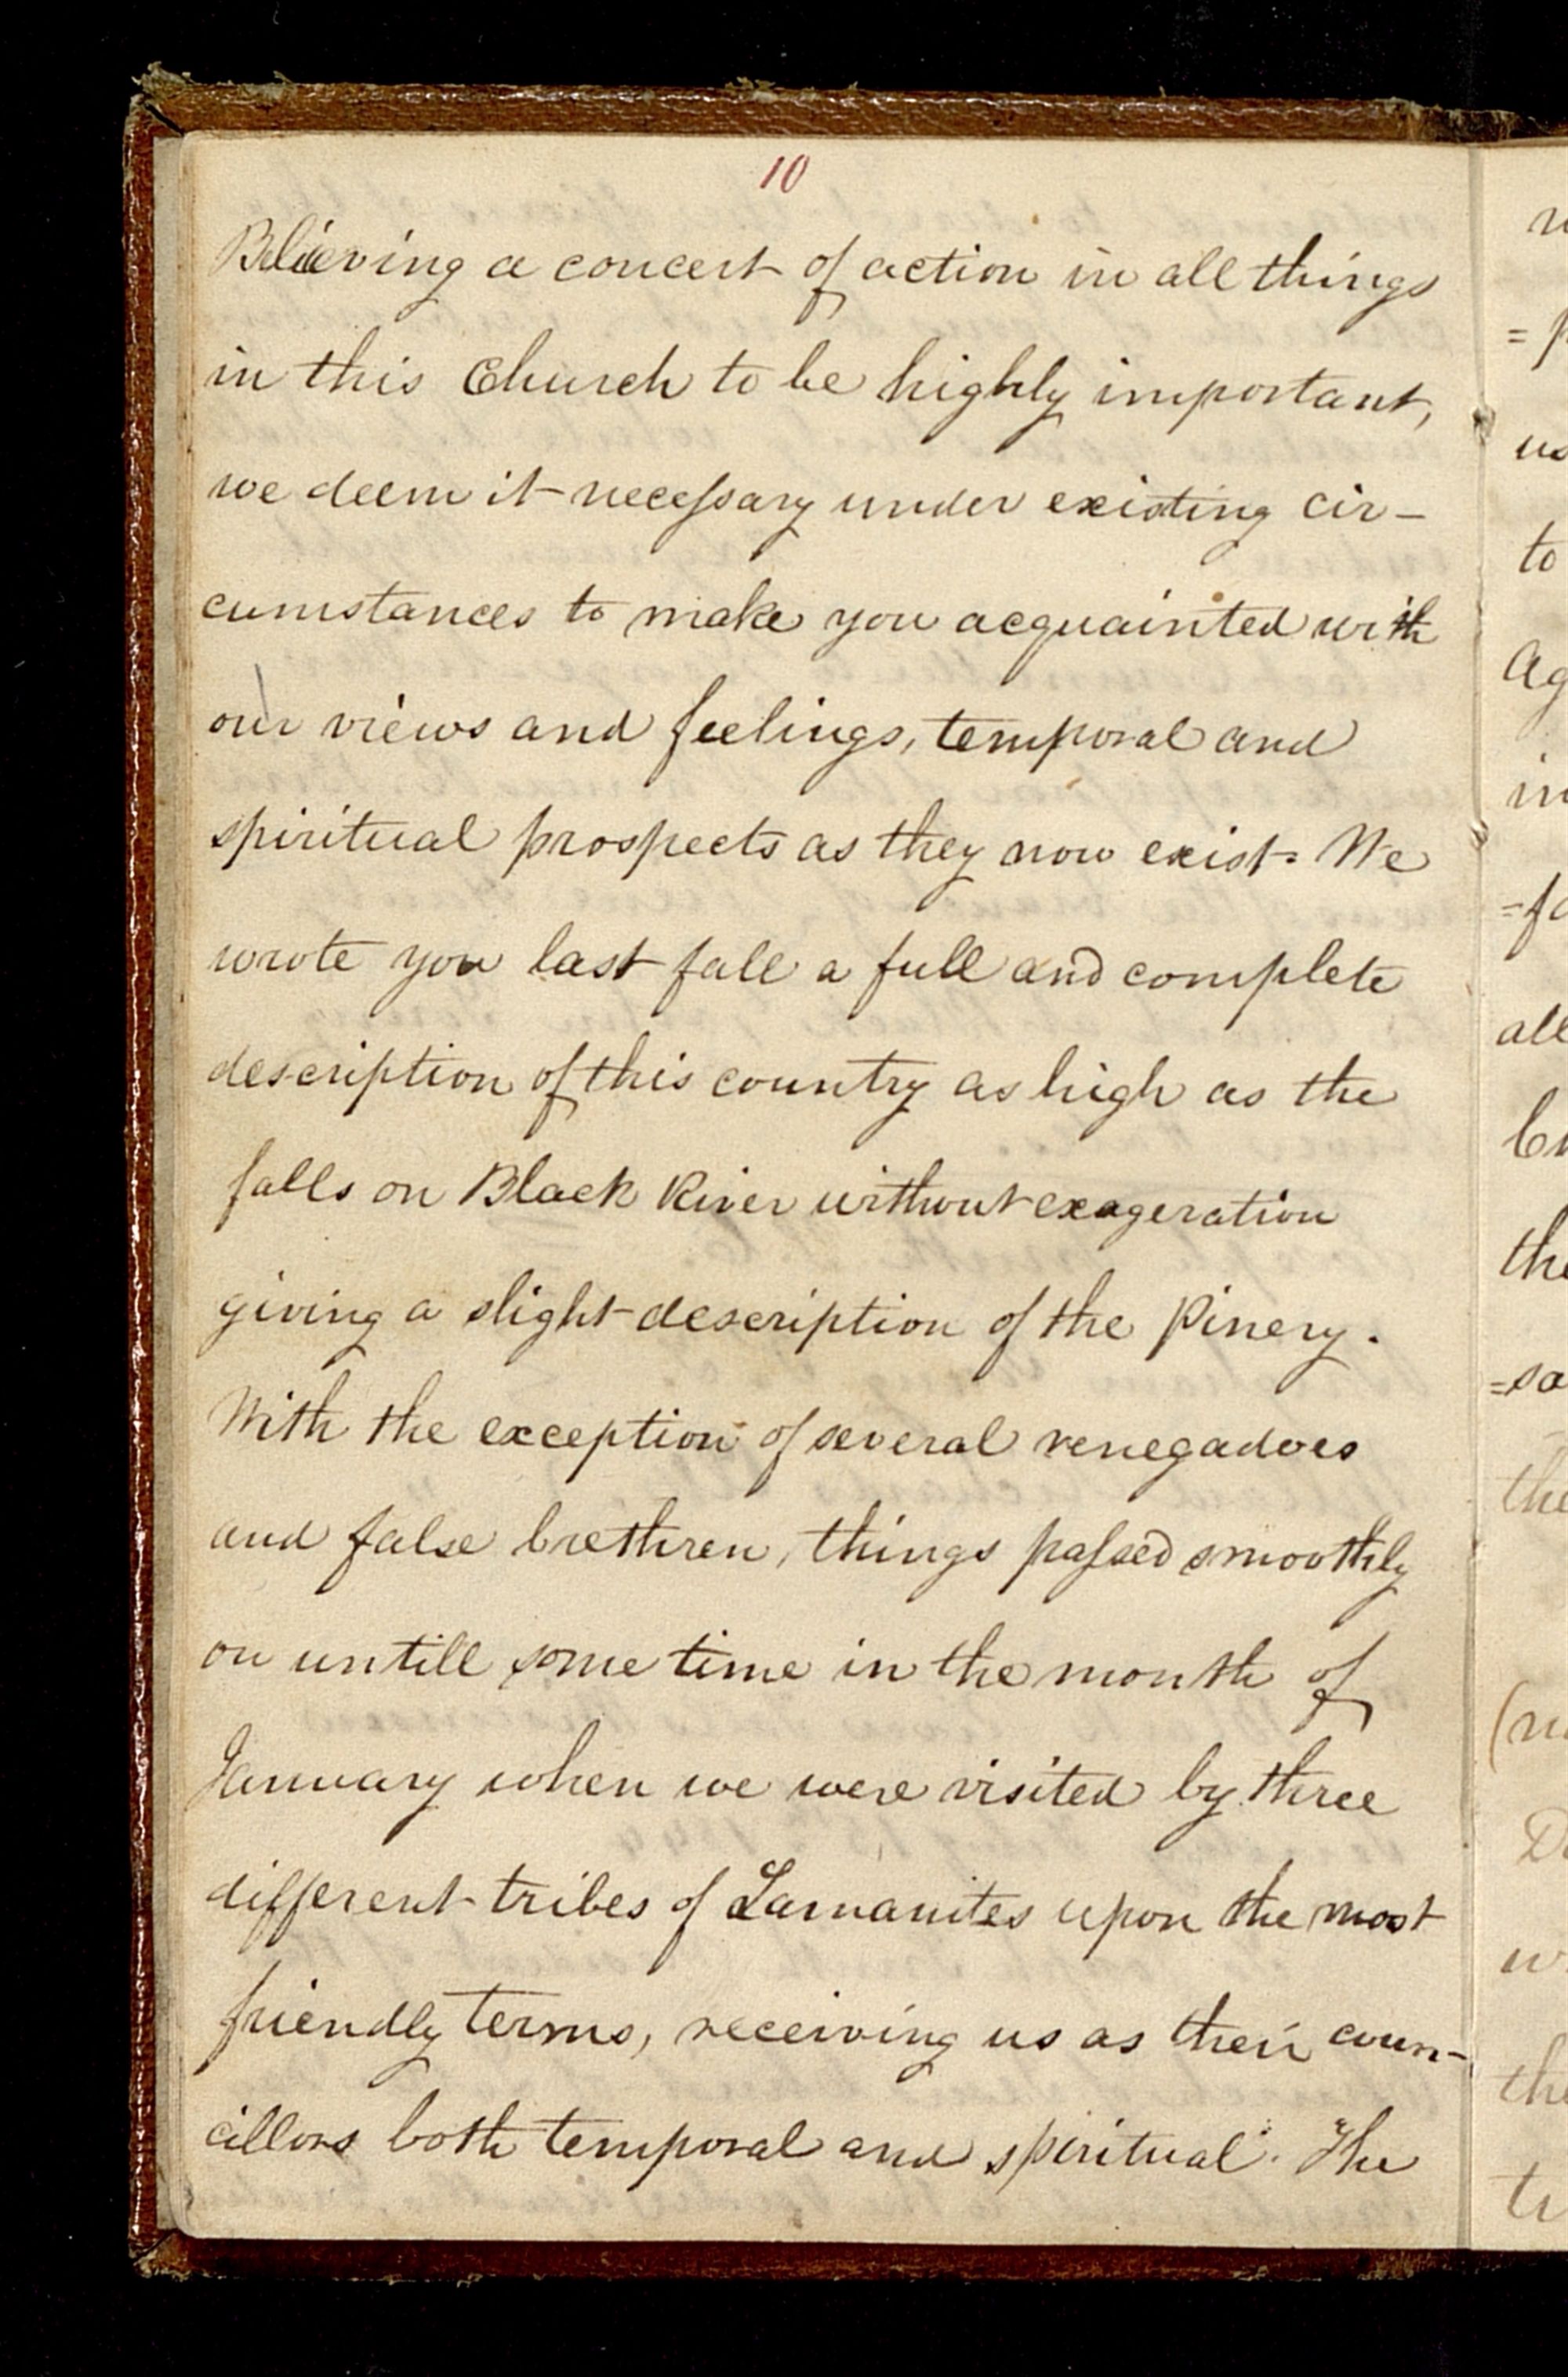 10
Believing a concert of action in all things
in this Church to be highly important,
we deem it necessary under existing cir-
cumstances to make you acquainted with
our views and feelings, temporal and
spiritual prospects as they now exist. We
wrote you last fall a full and complete
description of this country as high as the
falls on Black River without exageration
giving a slight description of the Pinery.
With the exception of several renegadoes
and false brethren, things passed smoothly
on untill some time in the month of
January when we were visited by three
different tribes of Lamanites upon the most
friendly terms, receiving us as their coun-
cillors both temporal and spiritual. The